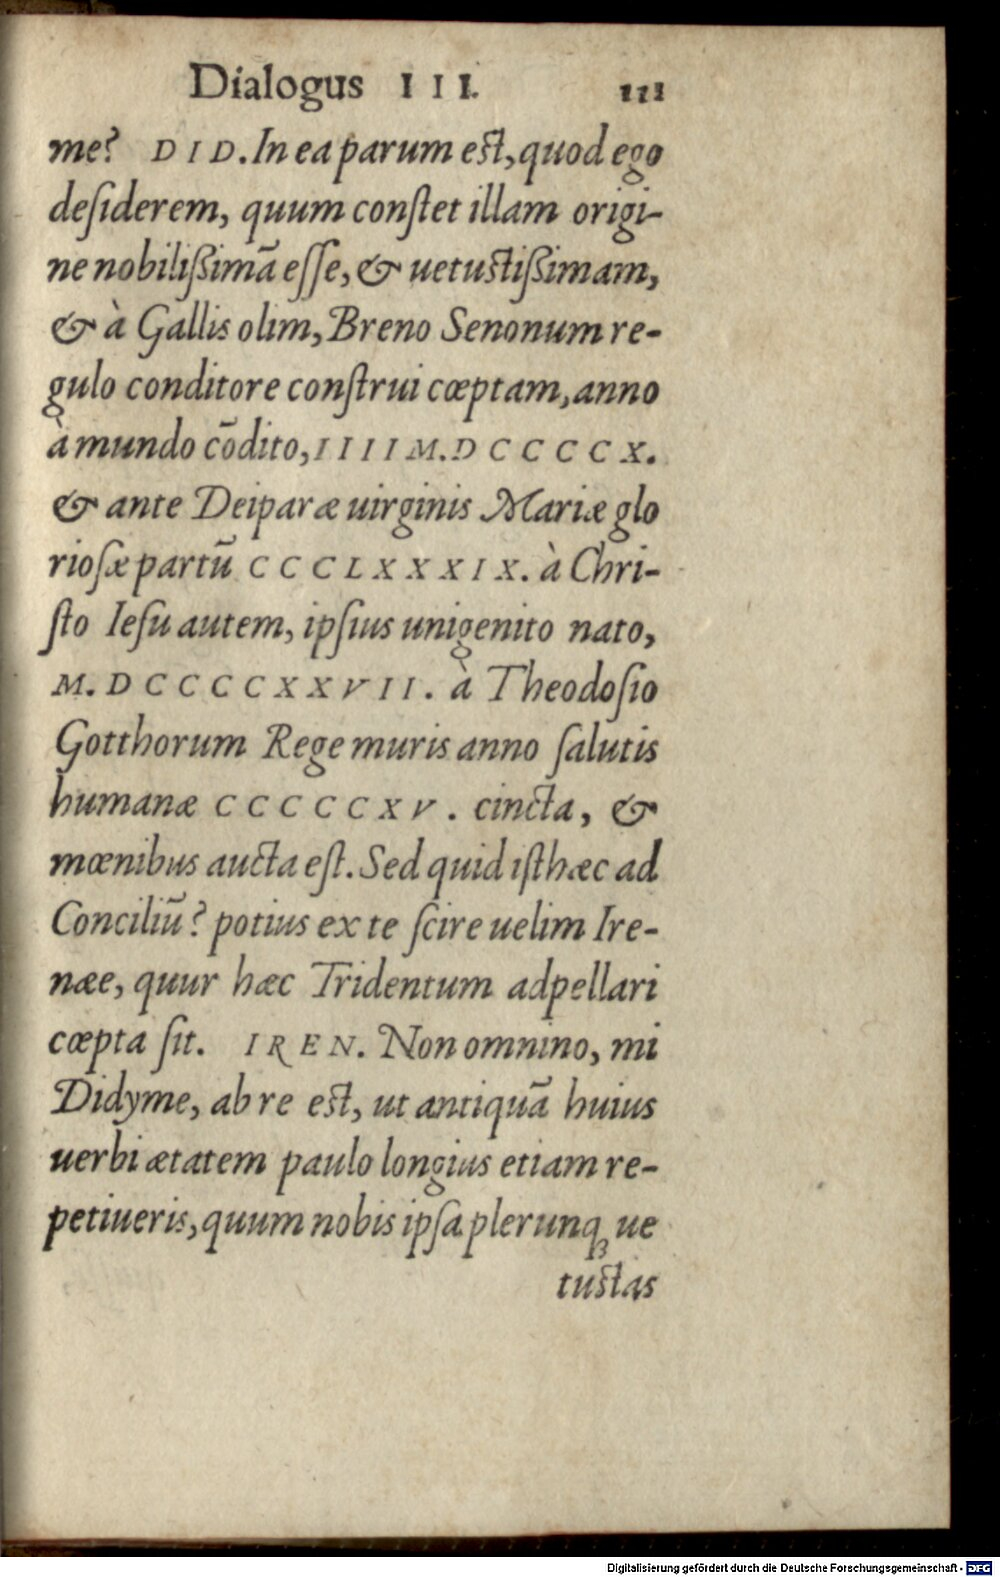 Dialogus III. 111
me? DID. In ea parum est, quod ego
deſiderem, quum conſtet illam origi-
ne nobilißimã eſſe, & uetustißimam,
& à Gallis olim, Breno Senonum re-
gulo conditore conſtrui cœptam, anno
à mundo cõdito, IIIIM.DCCCCX.
& ante Deiparæ uirginis Mariæ glo
rioſæ partũ CCCLXXXIX. à Chri-
ſto Ieſu autem, ipſius unigenito nato,
M.DCCCCXXVII. à Theodoſio
Gotthorum Rege muris anno ſalutis
humanæ CCCCCXV. cincta, &
mœnibus aucta eſt. Sed quid iſthæc ad
Conciliũ? potius ex te ſcire uelim Ire-
næe, quur hæc Tridentum adpellari
cœpta ſit. IREN. Non omnino, mi
Didyme, ab re est, ut antiquã huius
uerbi ætatem paulo longius etiam re-
petiueris, quum nobis ipſa plerunq; ue
tustas
Digitalisierung gefördert durch die Deutsche Forschungsgemeinschaft - DFG